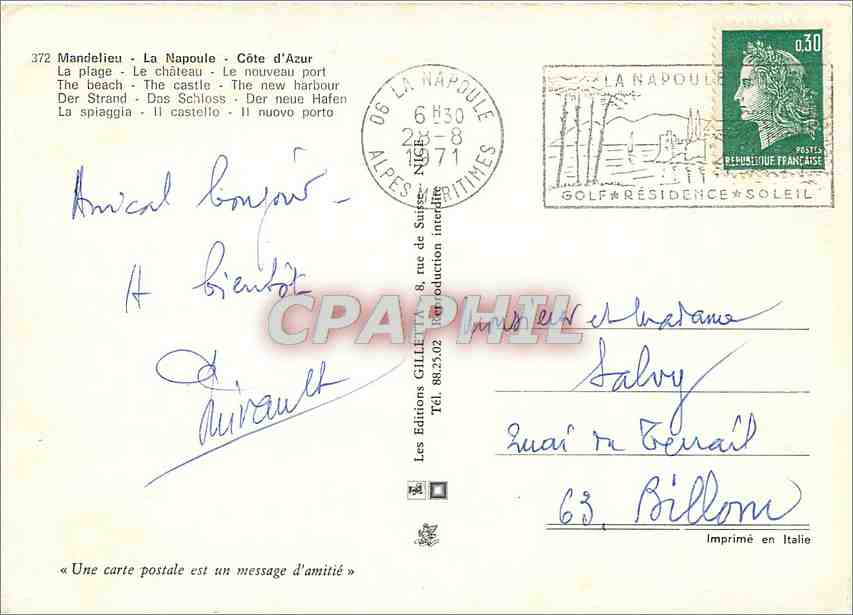 372 Mandelieu - La Napoule - Côte d'Azur
La plage - Le château - Le nouveau port
The beach - The castle - The new harbour
Der Strand - Das Schloss - Der neue Hafen
La spiaggia - Il castello - Il nuovo porto
06 LA NAPOULE
6H30
28-8
1971
ALPES MARITIMES
LA NAPOULE
GOLF ★ RÉSIDENCE ★ SOLEIL
0,30
POSTES
REPUBLIQUE FRANÇAISE
Amical bonjour -
A bientôt
Les Editions GILLETTA - 8, rue de Suisse, NICE
Tél. 88.25.02 Reproduction interdite
CPAPHIL
Monsieur et Madame
Salvy
Quai du Terrail
63. Billom
Imprimé en Italie
« Une carte postale est un message d'amitié »